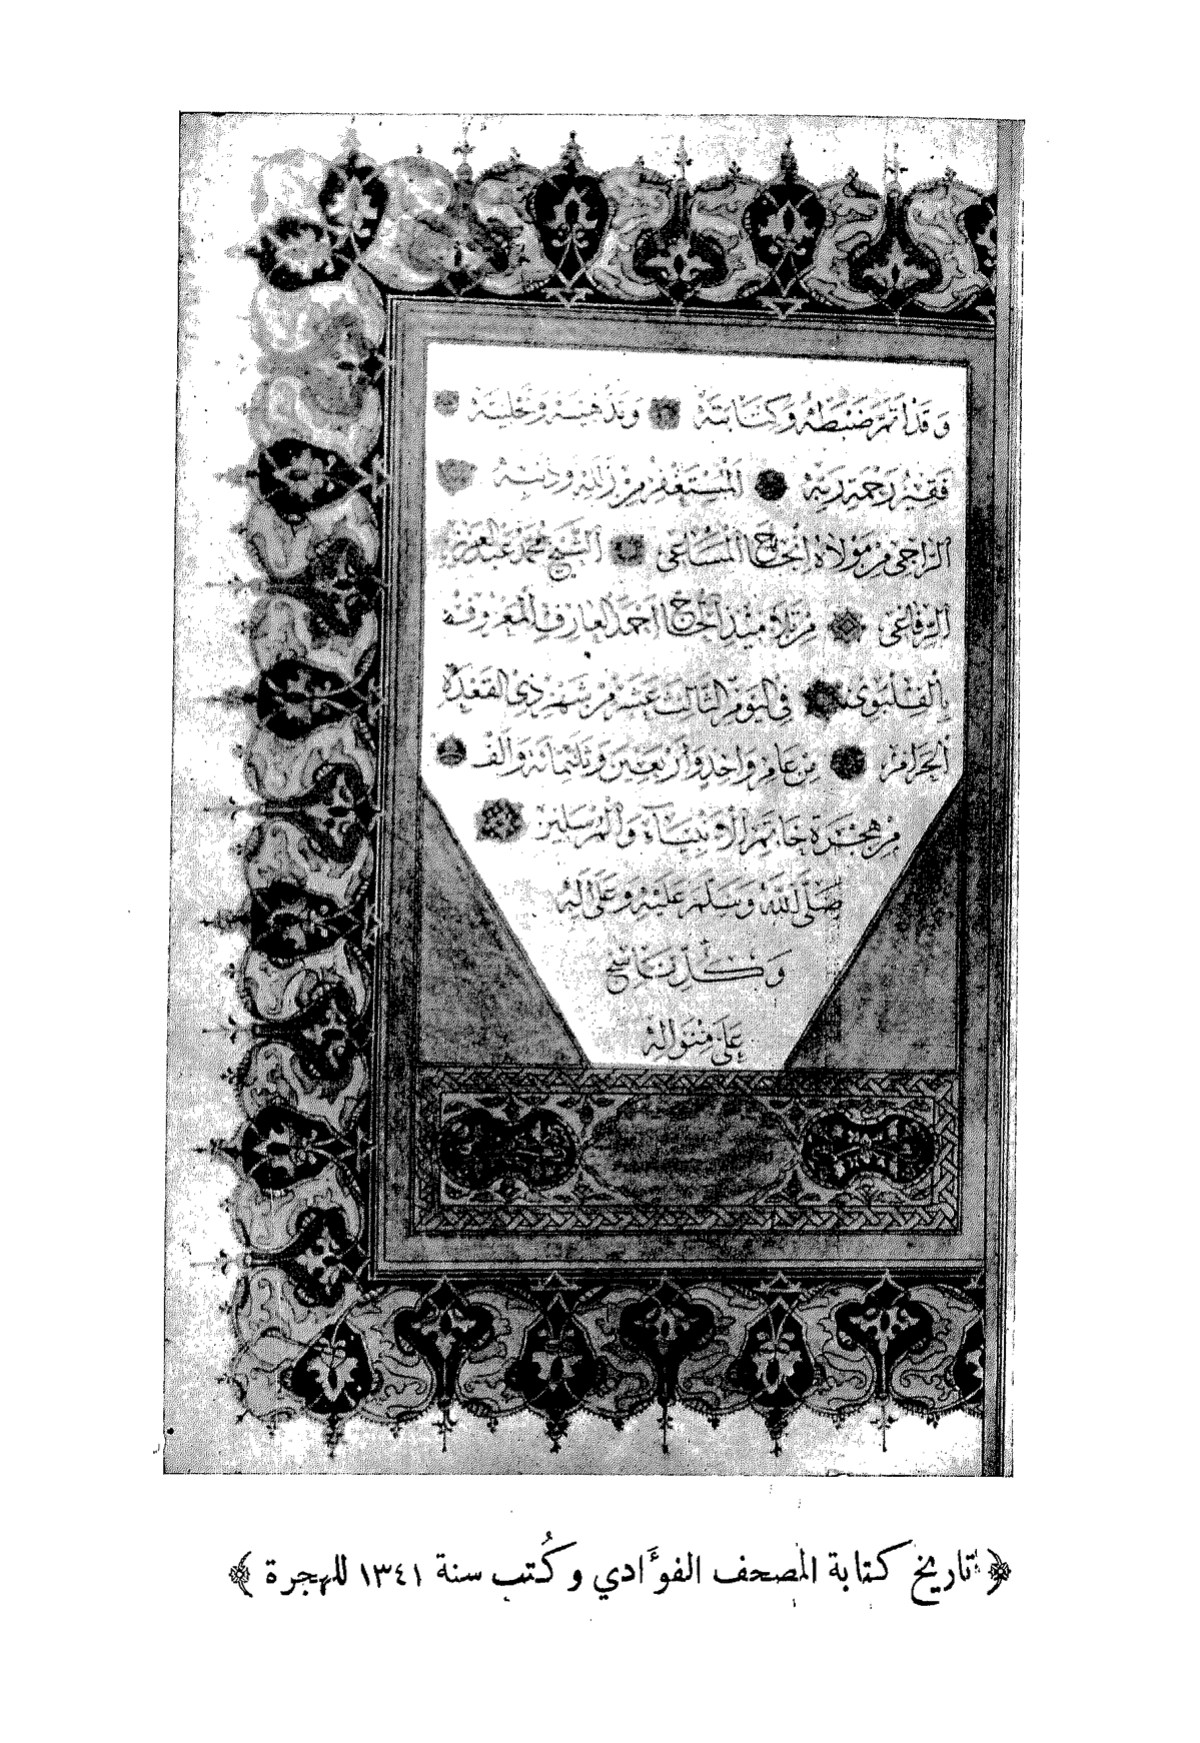 وَقَدْ تَمَّ ضَبْطُهُ وَكِتَابَتُهُ وَتَذْهِيبُهُ وَتَحْلِيَتُهُ
فَقِيرُ رَحْمَةِ رَبِّهِ الْمُسْتَغْفِرُ مِنْ زَلَلِهِ وَذَنْبِهِ
الرَّاجِي مِنْ مَوْلَاهُ إِنْجَاحَ الْمَسَاعِي الشَّيْخُ مُحَمَّد عَبْدُ الْعَزِيزِ
الرِّفَاعِي مِنْ تَلَامِيذِ الْحَاجّ أَحْمَدَ الْعَارِفِ الْمَعْرُوفِ
بِالْفِلِبَوِي فِي الْيَوْمِ الثَّالِثَ عَشَرَ مِنْ شَهْرِ ذِي الْقَعْدَةِ
الْحَرَامِ مِنْ عَامِ وَاحِدٍ وَأَرْبَعِينَ وَثَلَثِمِائَةٍ وَأَلْفٍ
مِنْ هِجْرَةِ خَاتَمِ الْأَنْبِيَاءِ وَالْمُرْسَلِينَ
صَلَّى اللَّهُ وَسَلَّمَ عَلَيْهِ وَعَلَى آلِهِ
وَكُلِّ نَاسِجٍ
عَلَى مِنْوَالِهِ
﴿ تاريخ كتابة المصحف الفؤَادي وكُتب سنة ١٣٤١ للهجرة ﴾